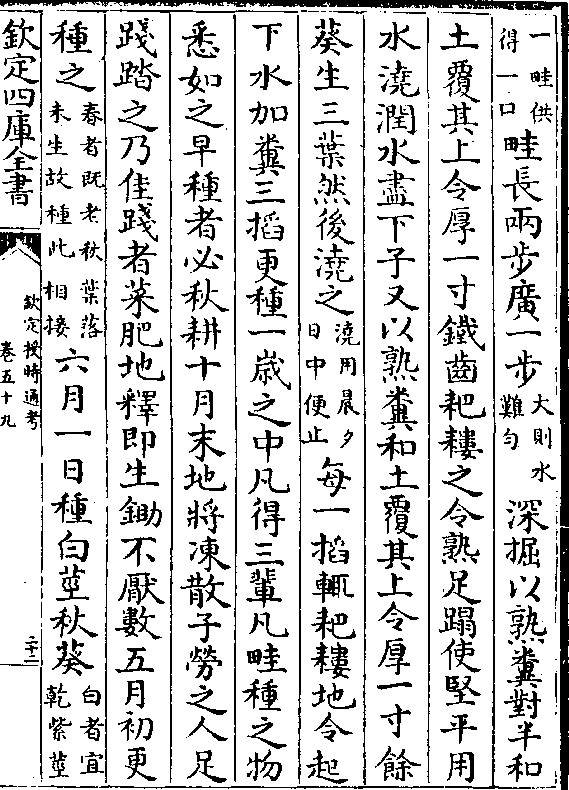 一畦供得一口畦長兩步廣一步大則水難勻深掘以熟糞對半和
土覆其上令厚一寸鐵齒耙耬之令熟足蹋使堅平用
水澆潤水盡下子又以熟糞和土覆其上令厚一寸餘
葵生三葉然後澆之澆用晨夕日中便止每一搯輒耙耬地令起
下水加糞三搯更種一歲之中凡得三輩凡畦種之物
悉如之早種者必秋耕十月末地將凍散子勞之人足
踐踏之乃佳踐者菜肥地釋即生鋤不厭數五月初更
種之春者既老秋葉落未生故種此相接六月一日種白莖秋葵白者宜乾紫莖
欽定四庫全書
欽定授時通考
卷五十九
二十二